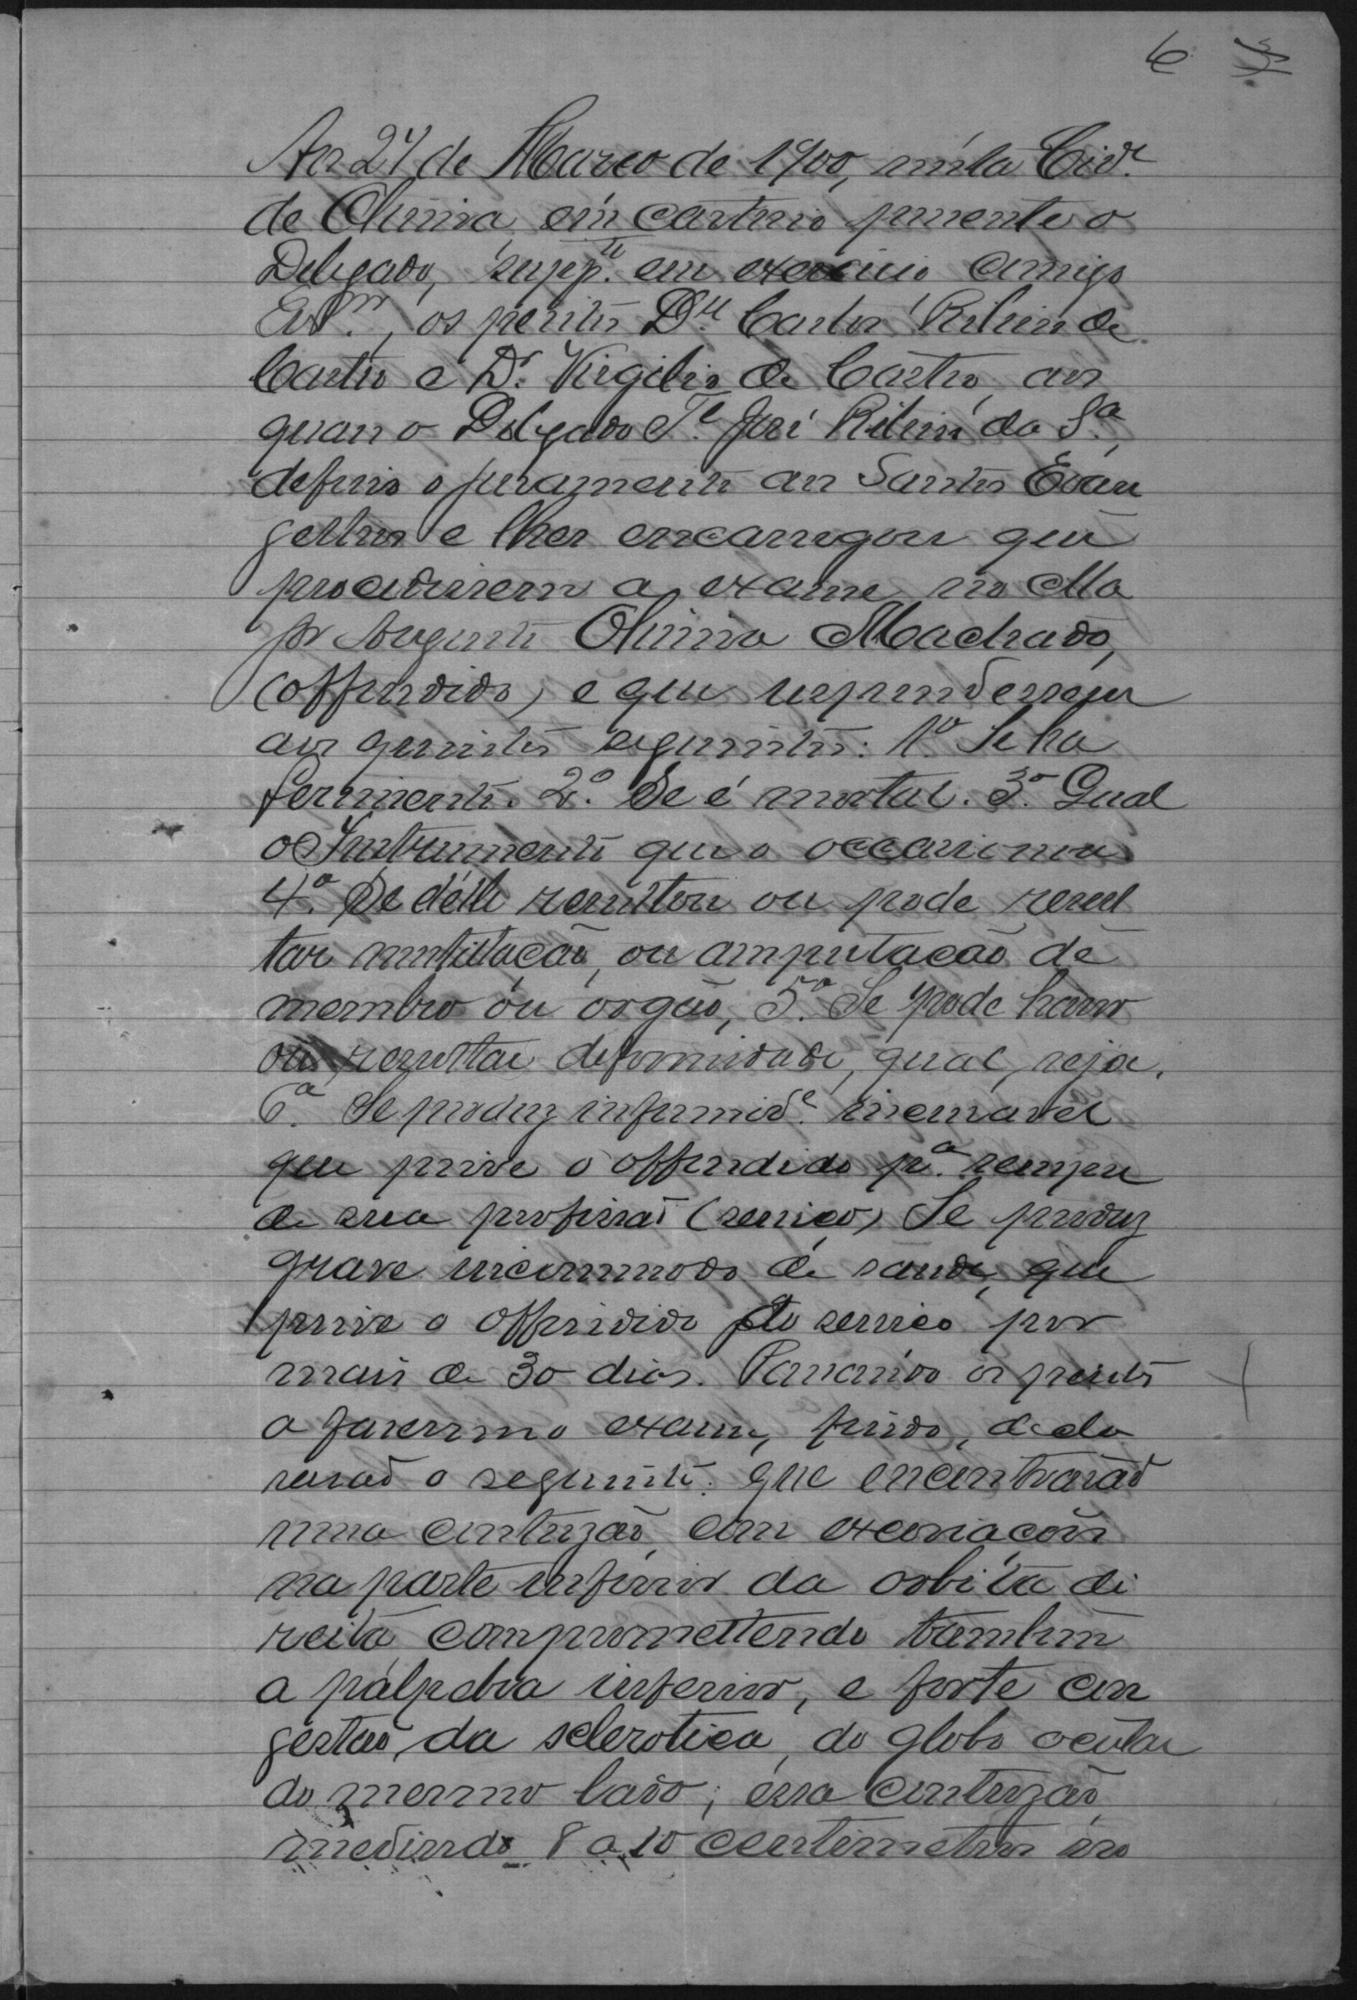 6
Aos 24 de Março de 1900, n'esta Cid.e
de Oliveira, em cartorio presente o
Delegado, supp.te em exercicio comigo
Esc.m, os peritos D.r Carlos Ribeiro de
Castro e D.r Virgilio de Castro, aos
quaes o Delegado T.e José Ribeiro da S.a
deferio o juramento aos Santos Evan
gelhos e lhes encarregou que
procedessem a exame no Ma
jor Augusto Oliveira Machado,
(offendido) e que respondessem
aos quesitos seguintes: 1.o Se ha
ferimento. 2.o Se é mortal. 3.o Qual
o Instrumento que o occasionou
4.o Se délle resultou ou pode resul
tar mutilação, ou amputacão de
membro ou orgão, 5.o Se pode haver
ou resultar deformidade, qual seja.
6.a Se produz infermid.e incuravel
que prive o offendido p.a sempre
de sua profissão (serviço) Se produz
grave incommodo de saude, que
prive o offendido do serviço por
mais de 30 dias. Passando os peritos
a fazerem o exame, findo, decla
rarão o seguinte: que encontrarão
uma contuzão com excoriacões
na parte inferior da orbita di
reita compromettendo tambem
a pálpebra inferior, e forte con
gestão da sclerotica, do globo ocular
do mesmo lado; essa contuzão
medindo 8 a 10 centimetros no